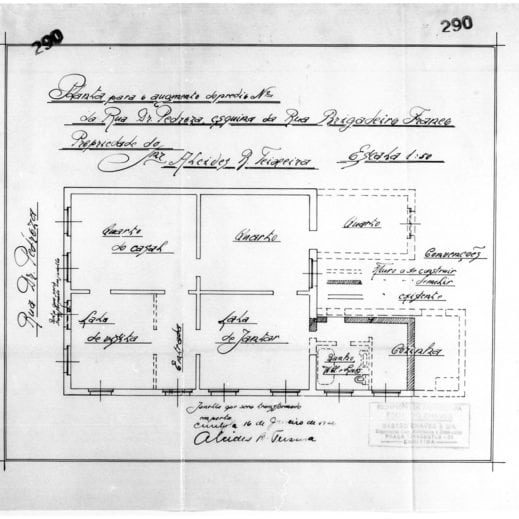 290
290
Planta para o augmento do predio Nº
da Rua Dr Pedroza, esquina da Rua Brigadeiro Franco
Propriedade do
Snr Alcides R Teixeira Escala 1:50
Rua Dr Pedroza
Quarto
de casal
Quarto
Quarto
Convenções
Muro a se construir
demolir
existente
Sala
de visita
Entrada
Sala
de Jantar
Banho
Cozinha
Janella que sera transformado
em porta
16 de Janeiro de
Alcides R Teixeira
CURITYBA